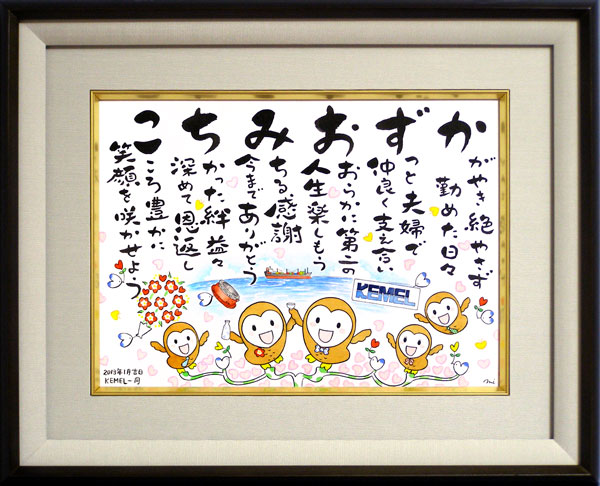 かずおみちこ
がやき絶やさず
勤めた日々
っと夫婦で
仲良く支え合い
おらかに第二の
人生楽しもう
ちる感謝
今までありがとう
かった絆益々
深めて恩返し
ころ豊かに
笑顔を咲かせよう
KEMEL
2013年1月吉日
KEMEL一同